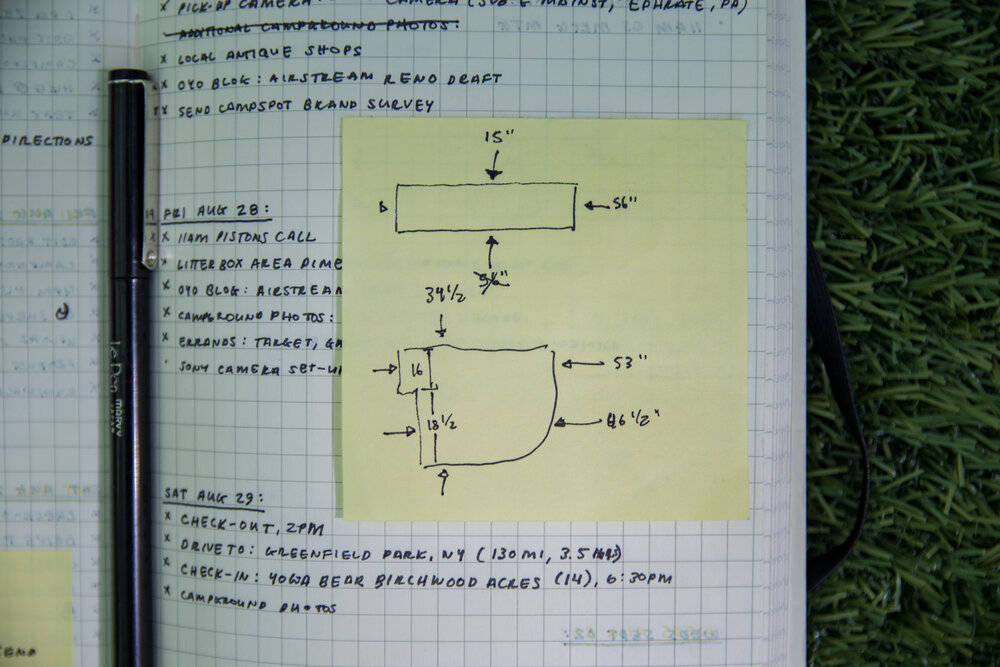 x PICK-UP CAMERA
ADDITIONAL CAMPGROUND PHOTOS:
x LOCAL ANTIQUE SHOPS
xx OYO BLOG: AIRSTREAM RENO DRAFT
xx SEND CAMPSPOT BRAND SURVEY
DIRECTIONS
FRI AUG 28:
xx 11AM PISTONS CALL
x LITTERBOX AREA DIME
x OYO BLOG: AIRSTREAM
x CAMPGROUND PHOTOS:
x ERRANDS: TARGET, GA
· SONY CAMERA SET-U
15"
56"
34 1/2
16
53"
18 1/2
46 1/2"
le Pen MARVY
SAT AUG 29:
x CHECK-OUT, 2PM
x DRIVE TO: GREENFIELD PARK, NY (130 MI, 3.5 HRS)
x CHECK-IN: YOGI BEAR BIRCHWOOD ACRES (14), 6:30PM
x CAMPGROUND PHOTOS